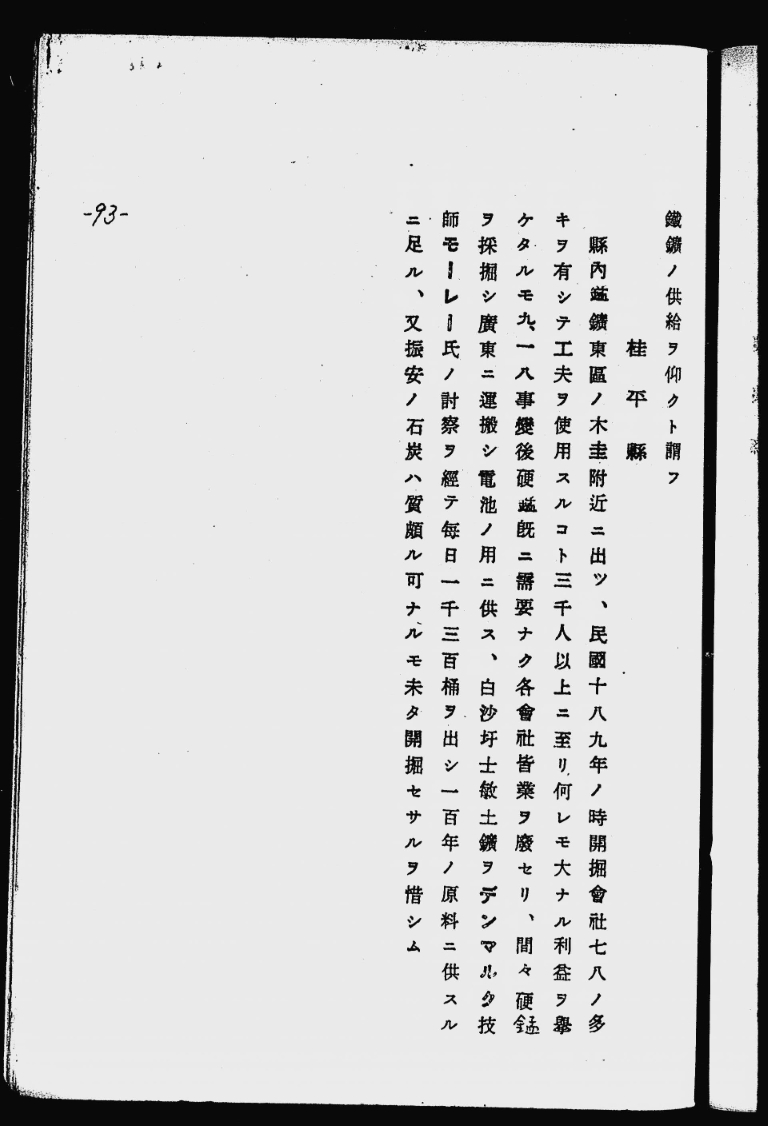 鐵鑛ノ供給ヲ仰クト謂フ
桂平縣
縣內錳鑛東區ノ木圭附近ニ出ツ、民國十八九年ノ時開掘會社七八ノ多
キヲ有シテ工夫ヲ使用スルコト三千人以上ニ至リ何レモ大ナル利益ヲ擧
ケタルモ九、一八事變後硬錳旣ニ需要ナク各會社皆業ヲ廢セリ、間々硬錳
ヲ採掘シ廣東ニ運搬シ電池ノ用ニ供ス、白沙圩士敏土鑛ヲデンマルク技
師モーレー氏ノ討察ヲ經テ每日一千三百桶ヲ出シ一百年ノ原料ニ供スル
ニ足ル、又振安ノ石炭ハ質頗ル可ナルモ未タ開掘セサルヲ惜シム
-93-